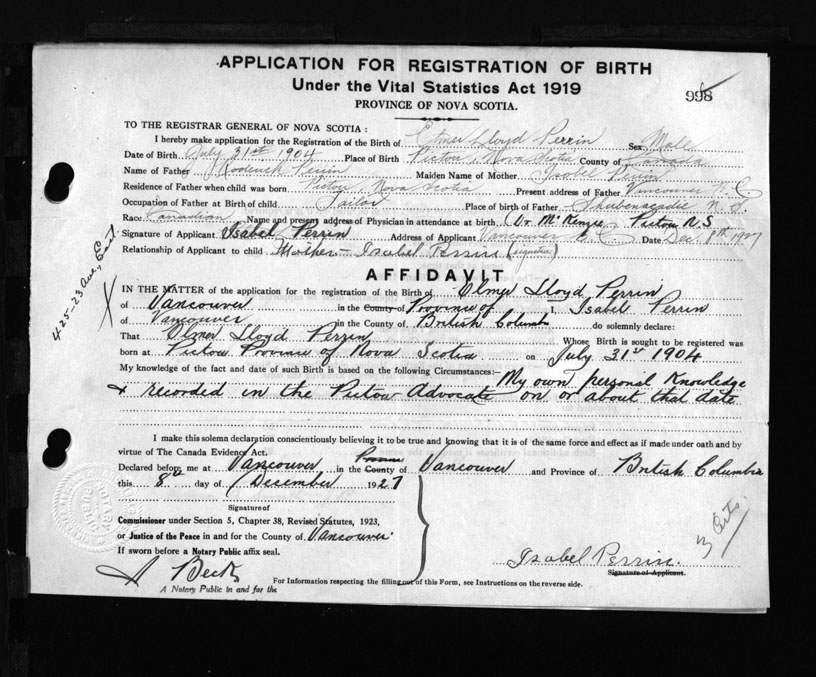 APPLICATION FOR REGISTRATION OF BIRTH
Under the Vital Statistics Act 1919
PROVINCE OF NOVA SCOTIA.
998
TO THE REGISTRAR GENERAL OF NOVA SCOTIA :
I hereby make application for the Registration of the Birth of Elmer Lloyd Perrin Sex Male
Date of Birth July 31st 1904 Place of Birth Pictou, Nova Scotia County of Canada
Name of Father Roderick Perrin Maiden Name of Mother Isobel Perrin
Residence of Father when child was born Pictou, Nova Scotia Present address of Father Vancouver B.C
Occupation of Father at Birth of child Tailor Place of birth of Father Shubenacadie N.S.
Race Canadian Name and present address of Physician in attendance at birth Dr McKenzie Pictou N.S
Signature of Applicant Isabel Perrin Address of Applicant Vancouver B.C. Date Dec. 8th 1927
Relationship of Applicant to child Mother - Isabel Perrin (signature)
425-23 Ave, East.
AFFIDAVIT
IN THE MATTER of the application for the registration of the Birth of Elmer Lloyd Perrin
of Vancouver in the County of Province of I, Isabel Perrin
of Vancouver in the County of British Columb do solemnly declare:
That Elmer Lloyd Perrin Whose Birth is sought to be registered was
born at Pictou Province of Nova Scotia on July 31st 1904
My knowledge of the fact and date of such Birth is based on the following Circumstances:- My own personal Knowledge
& recorded in the Pictou Advocate on or about that date
I make this solemn declaration conscientiously believing it to be true and knowing that it is of the same force and effect as if made under oath and by
virtue of The Canada Evidence Act.
Declared before me at Vancouver in the County of Vancouver and Province of British Columbia
this 8th day of December 1927
Signature of
Commissioner under Section 5, Chapter 38, Revised Statutes, 1923,
or Justice of the Peace in and for the County of Vancouver
If sworn before a Notary Public affix seal.
Isabel Perrin.
Signature of Applicant.
J Beck
For Information respecting the filling out of this Form, see Instructions on the reverse side.
A Notary Public in and for the